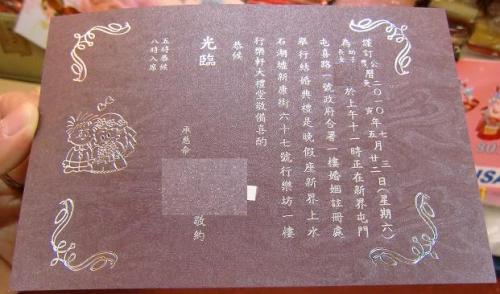 謹訂公曆二〇一〇年七月三日(星期六)
農 庚寅 五 廿二
為幼子長女於上午十一時正在新界屯門
屯喜路一號政府合署一樓婚姻註冊處
舉行結婚典禮是晚假座新界上水
石湖墟新康街六十七號行樂坊一樓
行樂軒大禮堂敬備喜酌
恭候
光臨
承慈命
敬約
五時恭候
八時入席